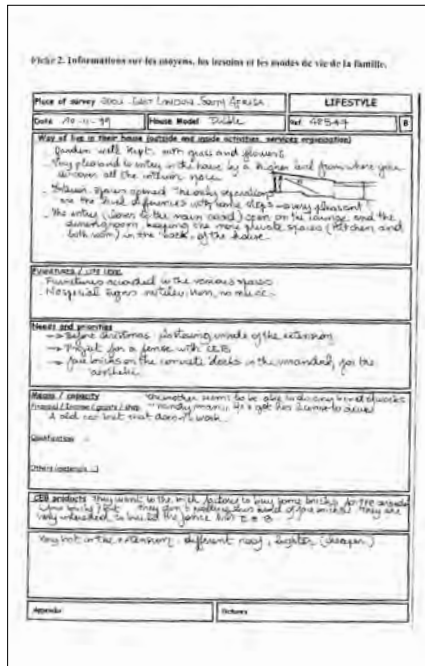 Fiche 2. Informations sur les moyens, les besoins et les modes de vie de la famille.
Place of survey 2001 East London, South Africa
LIFESTYLE
Date 10-11-99
House Model Double
Ref.
B
Way of live in their house (outside and inside activities, services organisation)
Garden well kept, with grass and flowers
Very pleasant to entry in the house by a higher land from where you
discover all the interior space
spaces opened. The only separation
are the level differences with some steps very pleasant
The entry (doors of the main road) open on the lounge and the
diningroom, keeping the more private spaces (kitchen and
bath room) in the "back" of the house.
Furnitures / Life level
Furnitures according to the various spaces
No special signs no television, no music
Needs and priorities
→ Before christmas plastering inside of the extension
→ Project for a fence with CEB
→ face bricks on the concrete blocks in the verandah, for the
aesthetic
Means / capacity
the mother seems to be able to do any kind of works
Financial / Income / grants / shop
"handy man", he's got his licence to drive
A old car but that doesn't work
Qualification
Others (materials ...)
CEB products They want to the brick factory to buy some bricks for the
(face bricks) but they don't this kind of face bricks. They are
very interested to build the fence with CEB
Very hot in the extension, different roof, lighter (cheaper)
Appendix
Pictures